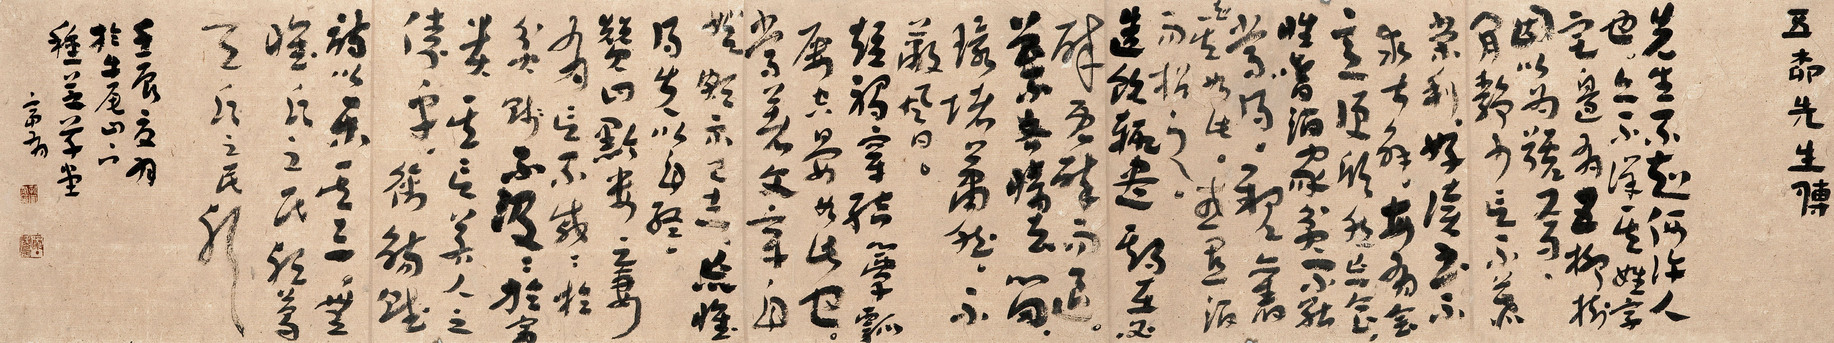 五柳先生傳
先生不知何許人
也亦不詳其姓字
宅邊有五柳樹
因以為號焉
閑靜少言不慕
榮利好讀書不
求甚解每有會
意便欣然忘食
性嗜酒家貧不能
常得親舊
知其如此或置酒
而招之
造飲輒盡期在必
醉既醉而退
曾不吝情去留
環堵蕭然不
蔽風日
短褐穿結簞瓢
屢空晏如也
常著文章自
娛頗示己志忘懷
得失以自終
贊曰黔婁之妻
有言不戚戚於
貧賤不汲汲於富
貴其言茲若人之
儔乎銜觴賦
詩以樂其志無
懷氏之民歟葛
天氏之民歟
壬辰夏月
於牛尾山下
種芝草堂